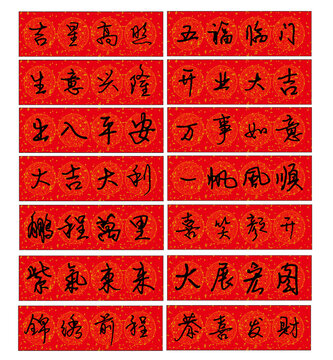 吉星高照 五福临门
生意兴隆 开业大吉
出入平安 万事如意
大吉大利 一帆风顺
鹏程萬里 喜笑颜开
紫氣東来 大展宏图
锦绣前程 恭喜发财